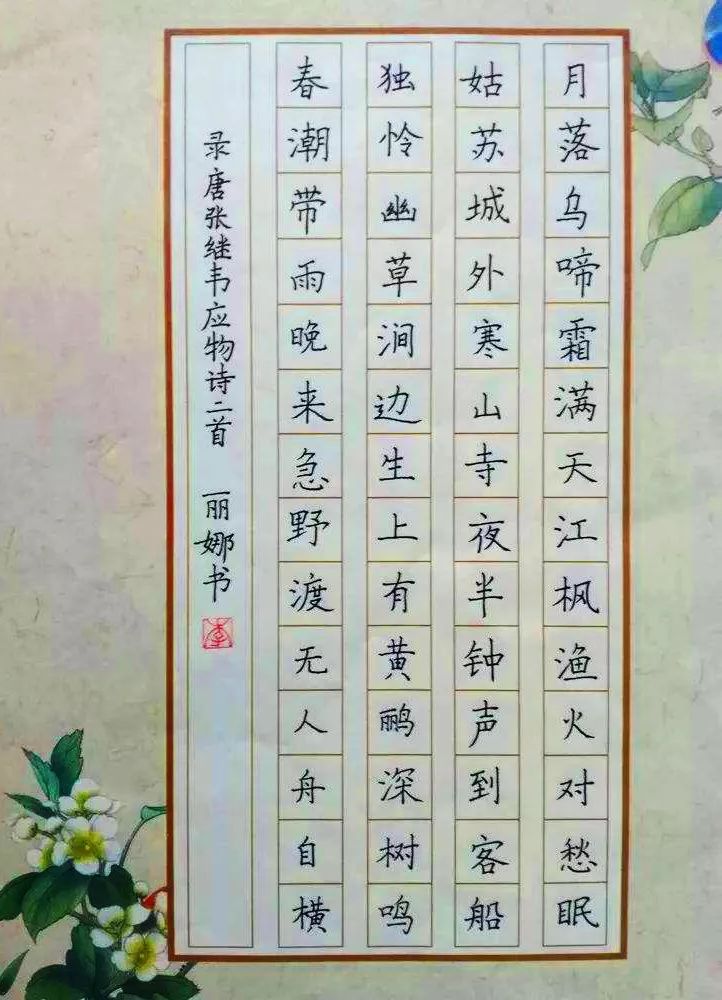 月落乌啼霜满天江枫渔火对愁眠
姑苏城外寒山寺夜半钟声到客船
独怜幽草涧边生上有黄鹂深树鸣
春潮带雨晚来急野渡无人舟自横
录唐张继韦应物诗二首 丽娜书
李